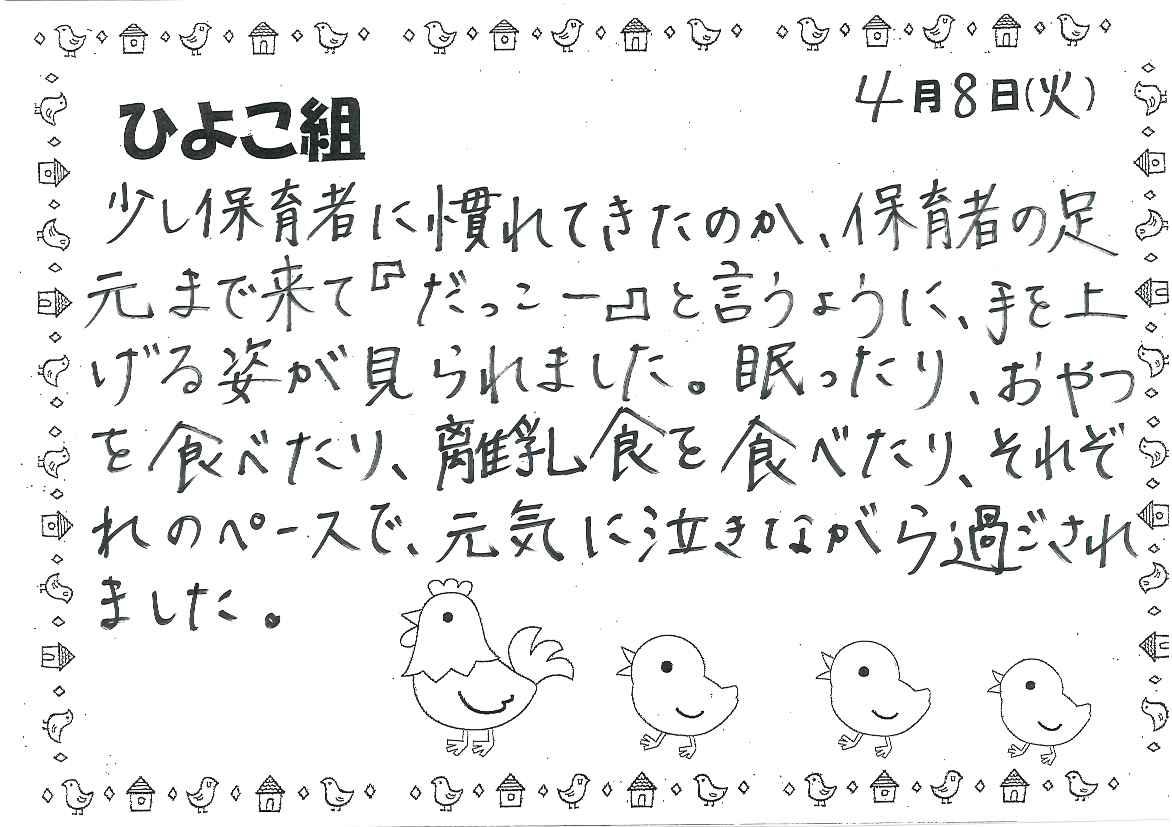 4月8日(火)
ひよこ組
少し保育者に慣れてきたのか、保育者の足
元まで来て『だっこー』と言うように、手を上
げる姿が見られました。眠ったり、おやつ
を食べたり、離乳食を食べたり、それぞ
れのペースで、元気に泣きながら過ごされ
ました。